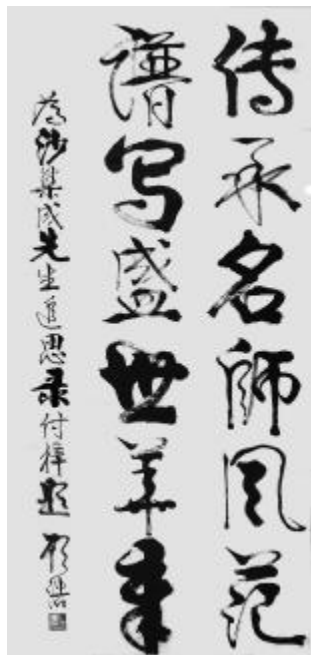 传承名師风范
譜写盛世华章
為沙集成先生追思录付梓題